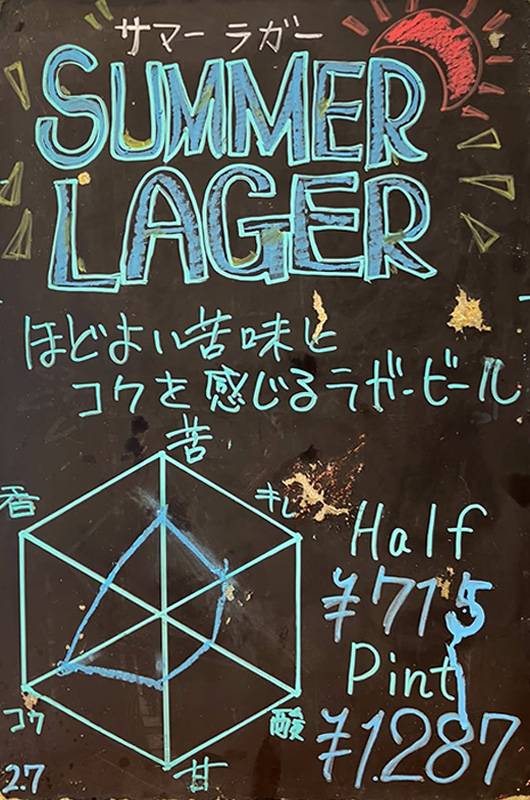 サマー ラガー
SUMMER
LAGER
ほどよい苦味と
コクを感じるラガービール
苦
香
キレ
Half
¥715
Pint
コク
酸
¥1.287
甘
2.7